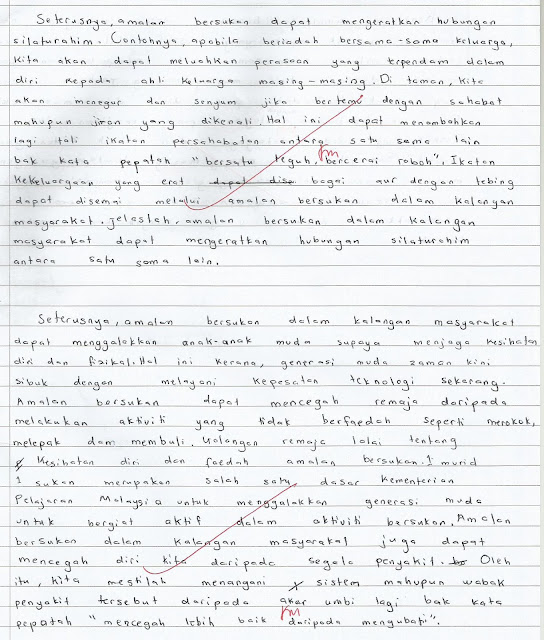 Seterusnya, amalan bersukan dapat mengeratkan hubungan
silaturahim. Contohnya, apabila beriadah bersama-sama keluarga,
kita akan dapat meluahkan perasaan yang terpendam dalam
diri kepada ahli keluarga masing-masing. Di taman, kita
akan menegur dan senyum jika bertemu dengan sahabat
mahupun jiran yang dikenali. Hal ini dapat menambahkan
lagi tali ikatan persahabatan antara satu sama lain
bak kata pepatah "bersatu teguh, bercerai roboh". Ikatan
kekeluargaan yang erat dapat dise bagai aur dengan tebing
dapat disemai melalui amalan bersukan dalam kalangan
masyarakat. Jelaslah, amalan bersukan dalam kalangan
masyarakat dapat mengeratkan hubungan silaturahim
antara satu sama lain.
Seterusnya, amalan bersukan dalam kalangan masyarakat
dapat menggalakkan anak-anak muda supaya menjaga kesihatan
diri dan fizikal. Hal ini kerana, generasi muda zaman kini
sibuk dengan melayani kepesatan teknologi sekarang.
Amalan bersukan dapat mencegah remaja daripada
melakukan aktiviti yang tidak berfaedah seperti merokok,
melepak dam membuli. Golongan remaja lalai tentang
kesihatan diri dan faedah amalan bersukan. 1 murid
1 sukan merupakan salah satu dasar Kementerian
Pelajaran Malaysia untuk menggalakkan generasi muda
untuk bergiat aktif dalam aktiviti bersukan. Amalan
bersukan dalam kalangan masyarakat juga dapat
mencegah diri kita daripada segala penyakit. Oleh
itu, kita mestilah menangani sistem mahupun wabak
penyakit tersebut daripada akar umbi lagi bak kata
pepatah "mencegah lebih baik daripada mengubati".